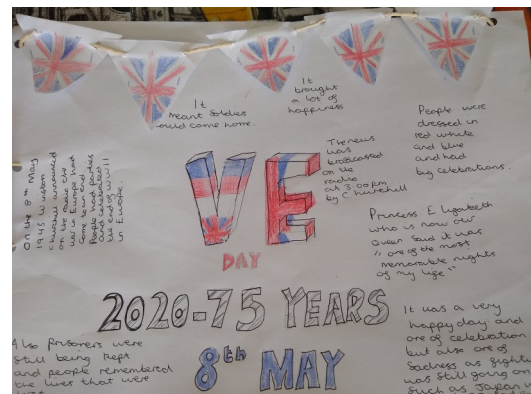 It
meant Soldiers
could come home.
It
brought
a lot of
happiness
People were
dressed in
red white
and blue
and had
big celebrations.
On the 8th May
1945 Winston
Churchill announced
on the radio the
war in Europe had
come to an end
People had parties
and celebrated
the end of WWII
in Europe.
VE
DAY
The news
was
broadcasted
on the
radio
at 3.00pm
by C hurchill
Princess Elizabeth
who is now our
Queen said it was
"one of the most
memorable nights
of my life"
2020-75 YEARS
8th MAY
Also prisoners were
still being kept
and people remembered
the lives that were
It was a very
happy day and
one of celebration
but also one of
Sadness as fighting
was still going on
such as Japan